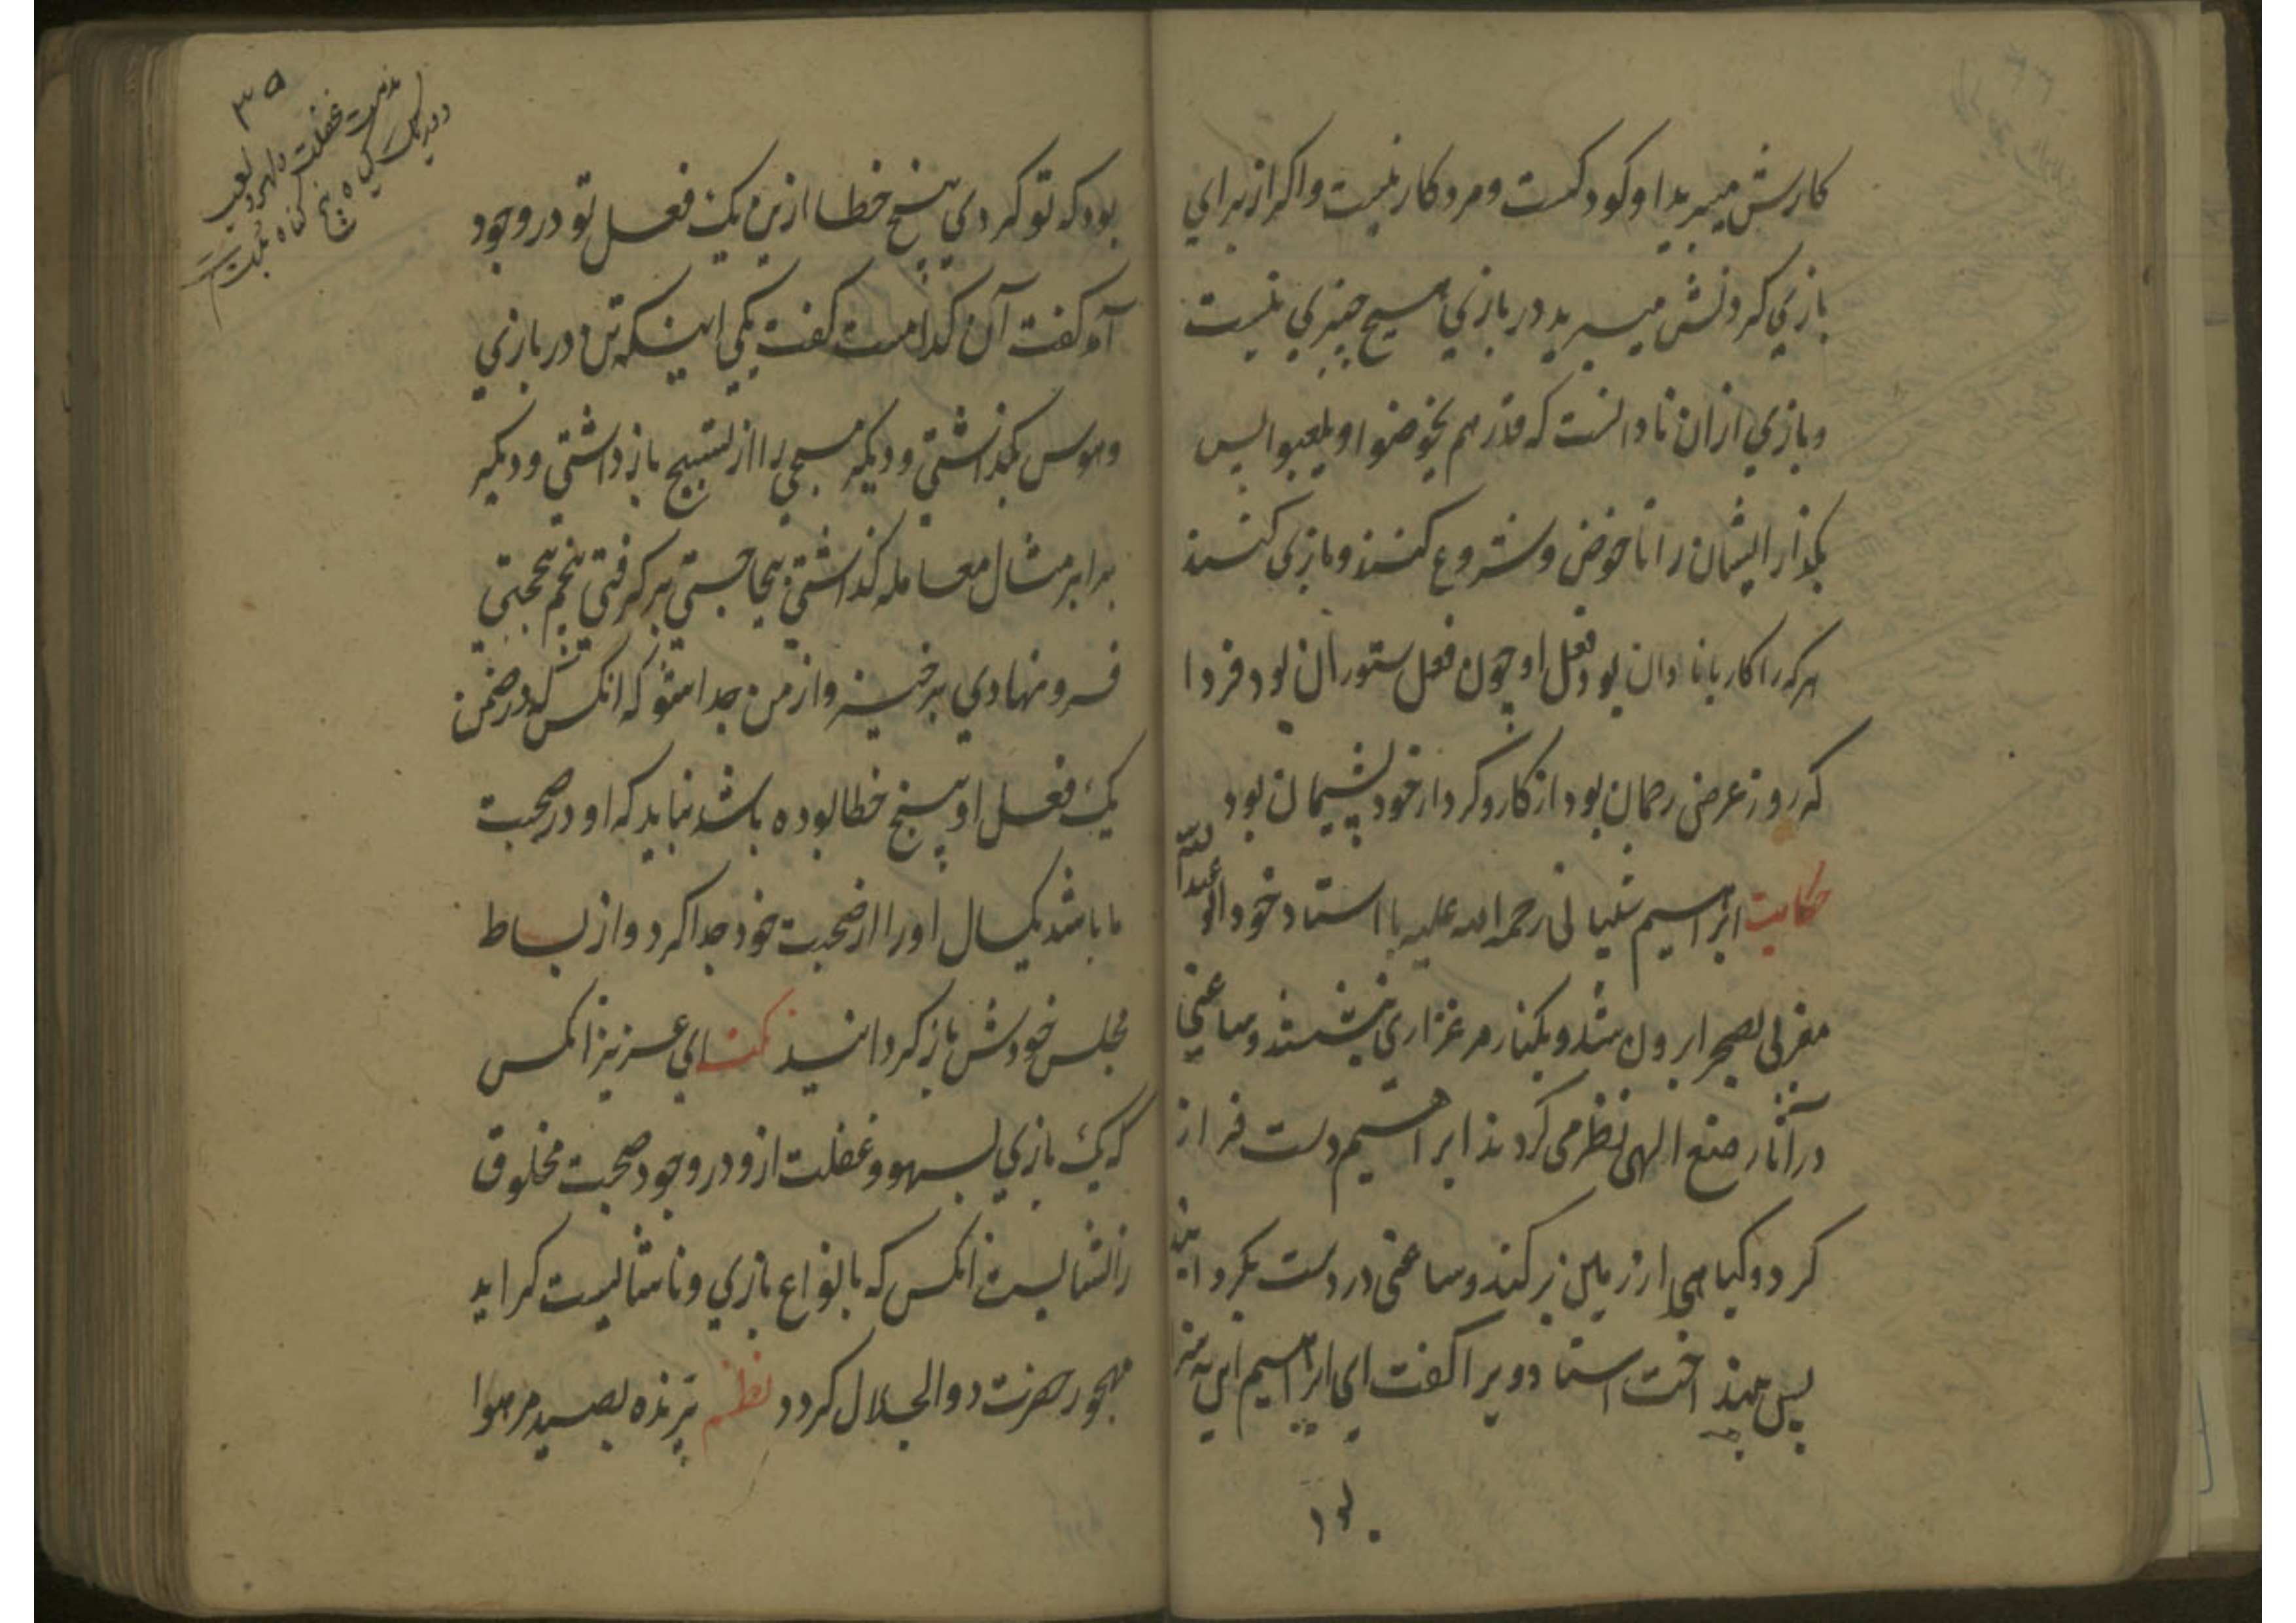 کارش میبرید او کودکست و مرد کار نیست و اکر از برای
بازی کردنش میبرید در بازی هیچ چیزی نیست
و بازی از ان نادانست که فذرهم یخوضوا و یلعبوا پس
بکذار ایشان را تا خوض و شروع کنند و بازی کنند
هرکه را کار با نادان بود فعل او چون فعل ستوران بود فردا
که روز عرض رحمان بود از کار و کردار خود پشیمان بود
حکایت ابراهیم شیبانی رحمه الله علیه با استاد خود ابو عبدالله
مغربی بصحرا برون شد و بکنار مرغزاری بنشستند و ساعتی
در آثار صنع الهی نظر می کردند ابراهیم دست فراز
کرد و کیاهی از زمین برکند و ساعتی در دست بکردانید
پس بینداخت استاد ویرا کفت ای ابراهیم این چه
بود
بود که تو کردی پنج خطا ازین یک فعل تو در وجود
آمد کفت آن کدامست کفت یکی اینکه تن در بازی
و هوس بکذاشتی و دیکر مسبحی را از تسبیح باز داشتی و دیکر
برابر مثال معامله کذاشتی بیحاجتی برکرفتی پنجم بیحجتی
فرو نهادی برخیز و از من جدا شو که انکس که در ضمن
یک فعل او پنج خطا بوده باشد نباید که او در صحبت
ما باشد یکسال او را از صحبت خود جدا کرد و از بساط
مجلس خودش باز کردانید نکته ای عزیز انکس
که یک بازی بسهو و غفلت ازو در وجود صحبت مخلوق
را نشایست انکس که بانواع بازی و ناشایست کراید
مهجور حضرت ذوالجلال کردد نظم پرنده بصید مر هوا
۳۵
مذمت غفلت و لهو و لعب
کیاه پنج کناه ثابت